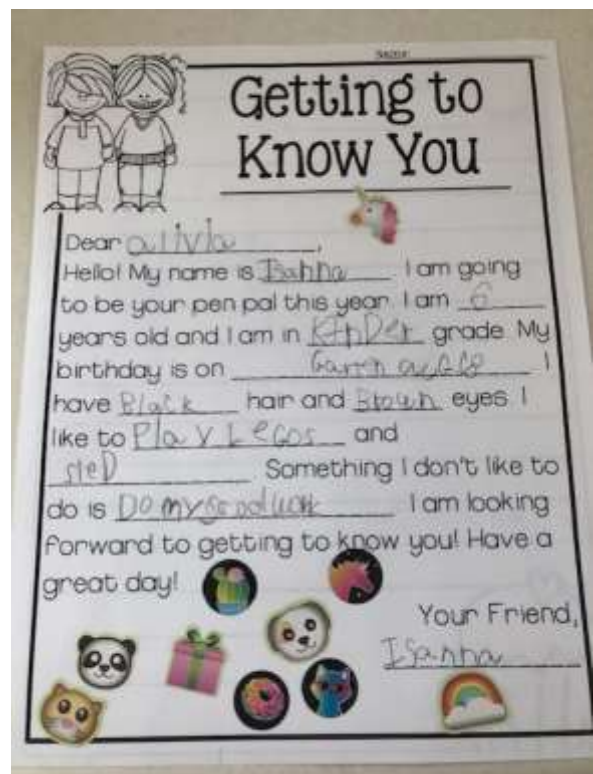 Name
Getting to
Know You
Dear alivia,
Hello! My name is Isanna I am going
to be your pen pal this year. I am 6
years old and I am in KinDer grade. My
birthday is on I
have Black hair and Brown eyes. I
like to Play Legos and
sleD. Something I don't like to
do is Do my I am looking
forward to getting to know you! Have a
great day!
Your Friend,
Isanna